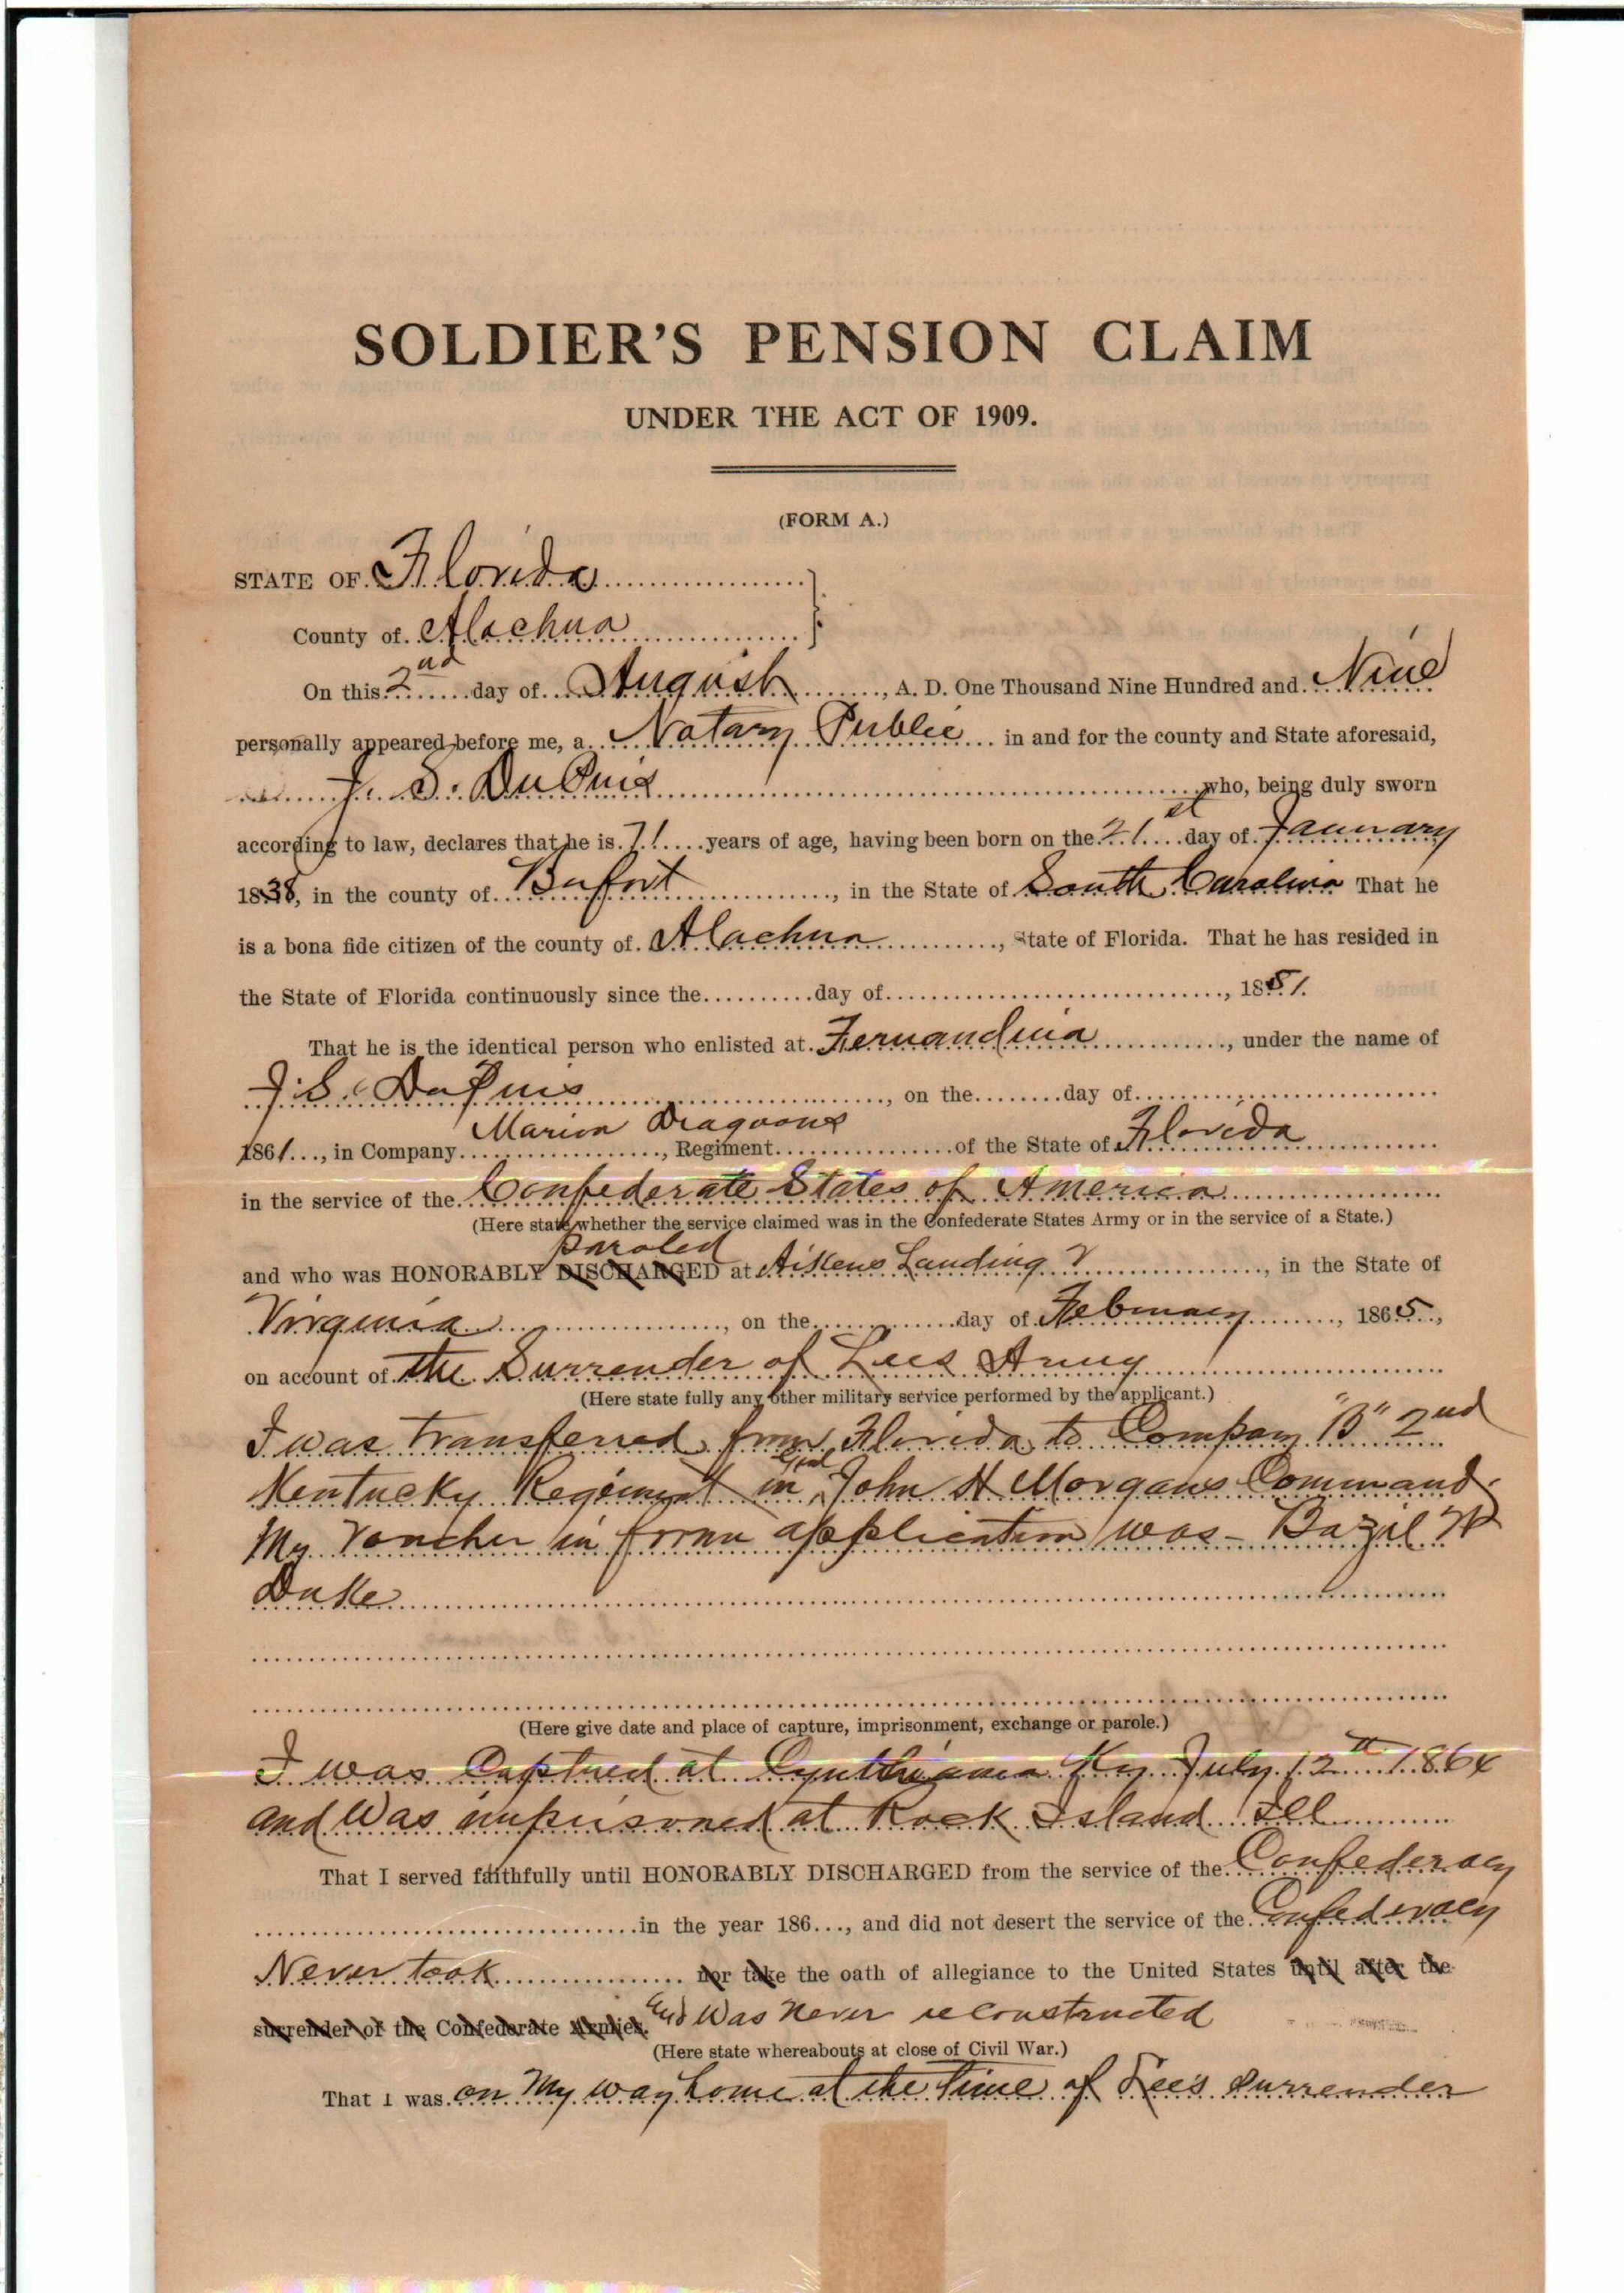 SOLDIER'S PENSION CLAIM
UNDER THE ACT OF 1909.
(FORM A.)
STATE OF Florida
County of Alachua
On this 2nd day of August, A. D. One Thousand Nine Hundred and Nine
personally appeared before me, a Notary Public in and for the county and State aforesaid,
J. S. DuPuis who, being duly sworn
according to law, declares that he is 71 years of age, having been born on the 21st day of January
1838, in the county of Bufort, in the State of South Carolina That he
is a bona fide citizen of the county of Alachua, State of Florida. That he has resided in
the State of Florida continuously since the day of, 1881.
That he is the identical person who enlisted at Fernandina, under the name of
J. S. DuPuis, on the day of
1861, in Company Marion Dragoons, Regiment of the State of Florida
in the service of the Confederate States of America
(Here state whether the service claimed was in the Confederate States Army or in the service of a State.)
paroled
and who was HONORABLY DISCHARGED at Aikens Landing, in the State of
Virginia, on the day of February, 1865,
on account of the Surrender of Lees Army
(Here state fully any other military service performed by the applicant.)
I was transferred from Florida to Company "B" 2nd
Kentucky Regiment in Genl John H Morgans Command.
My Voucher in form application was - Bazil W
Duke
(Here give date and place of capture, imprisonment, exchange or parole.)
I was Captued at Cynthiana Ky July 12th 1864
and was imprisoned at Rock Island Ill
That I served faithfully until HONORABLY DISCHARGED from the service of the Confederacy
in the year 186, and did not desert the service of the Confederacy
Never took nor take the oath of allegiance to the United States until after the
surrender of the Confederate Armies. And was never reconstructed
(Here state whereabouts at close of Civil War.)
That I was on my way home at the time of Lee's surrender